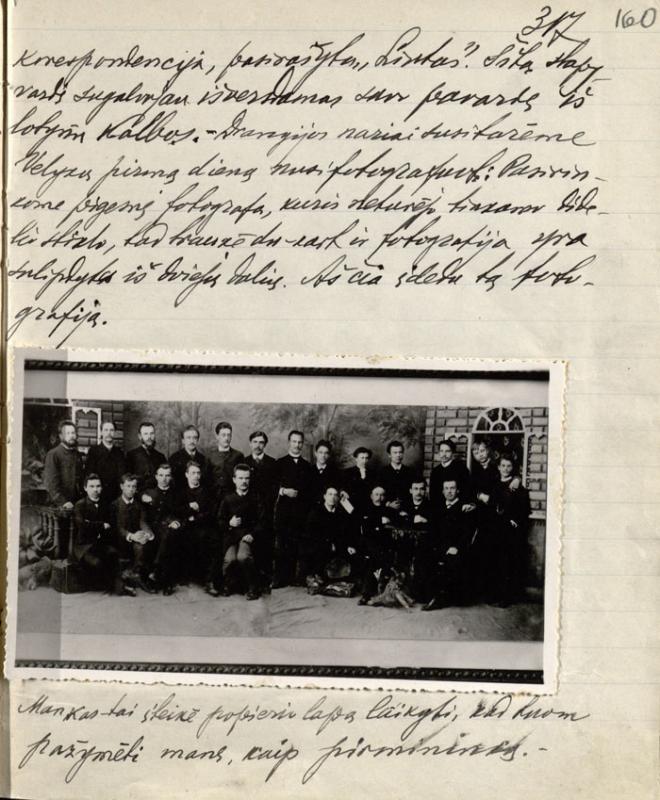 317 160
korespondencija, pasirašyta „Lintas". Šitą slapy-
vardį sugalvojau išversdamas savo pavardę iš
lotynų kalbos. – Draugijos nariai susitarėme
Velykų pirmą dieną nusifotografuoti. Pasirin-
kome pigesnį fotografą, kuris neturėjo tinkamo dide-
lio stiklo, tad traukė du-kart ir fotografija yra
sulipdyta iš dviejų dalių. Aš čia įdedu tą foto-
grafiją.
Man kas-tai įteikė popierio lapą laikyti, kad tuom
pažymėti mane, kaip pirmininką. –